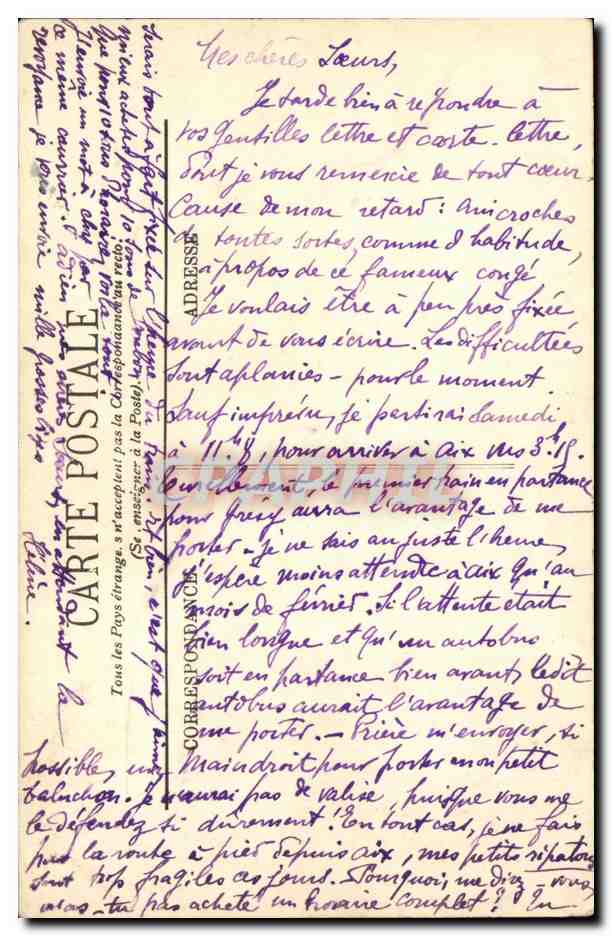 Mes chères Sœurs,
Je tarde bien à répondre à
vos gentilles lettre et carte-lettre,
dont je vous remercie de tout cœur.
Cause de mon retard : anicroches
de toutes sortes, comme d'habitude,
à propos de ce fameux congé
Je voulais être à peu près fixée
avant de vous écrire. Les difficultées
sont aplanies - pour le moment.
Sauf imprévu, je partirai Samedi
à 11h, pour arriver à Aix vers 3h 15.
Naturellement, le premier train en partance
pour Grésy aura l'avantage de me
porter - je ne sais au juste l'heure,
j'espère moins attendre à Aix qu'au
mois de février. Si l'attente était
bien longue et qu'un autobus
soit en partance bien avant, ledit
autobus aurait l'avantage de
me porter. - Prière m'envoyer, si
possible, une main droit pour porter mon petit
baluchon. Je n'aurai pas de valise, puisque vous me
le défendez si durement ! En tout cas, je ne fais
pas la route à pied depuis Aix, mes petits ripatons
sont trop fragiles ces jours. Pourquoi, me direz-vous,
n'as-tu pas acheté un horaire complet ? Tu
serais tout à fait fixée sur l'heure du train, et bien, c'est que j'aime
mieux acheter pour 10 sous de
que pour 10 sous d'horaire. Voilà tout
J'envoie un mot à
ce même courrier. A Dieu mes sœurs, en attendant la
revoyure je vous envoie mille grosses bises
Hélène.
CARTE POSTALE
Tous les Pays étrangers n'acceptent pas la Correspondance au recto.
(Se renseigner à la Poste).
CORRESPONDANCE
ADRESSE